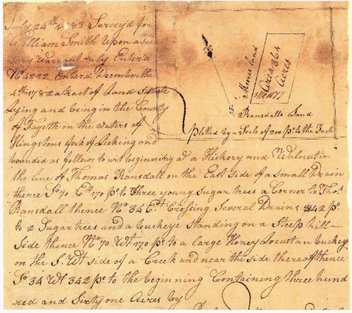 July 24th 1783 Survey'd for
William Smith Upon a Trea
sury Warrant as by Enterd
No 4232 Enterd December the
4th 1782 a tract of Land Situate
Lying and being in the County
of Fayette on the Waters of
Hingstons fork of Licking and
bounded as follows to wit beginning at a Hickory and Walnut in
the line of Thomas Ransdall on the East Side of a Small Drain
thence So 70 Et 170 ps to three young Sugar trees a Corner to Thos
Ransdall thence No 34 Et Crossing Several Drains 342 ps
to 2 Sugar trees and a Buckeye Standing on a Steep hill-
Side thence No 70 Wt 170 ps to a large Honey Locust an Buckey
on the S. Wt side of a Creek and near the side thereof thence
So 34 Wt 342 ps to the beginning Containing three hund
red and Sixty one Acres by
Land
361
Acres
Ransdalls Land
plotted by a Scale of 200 ps to the Inch